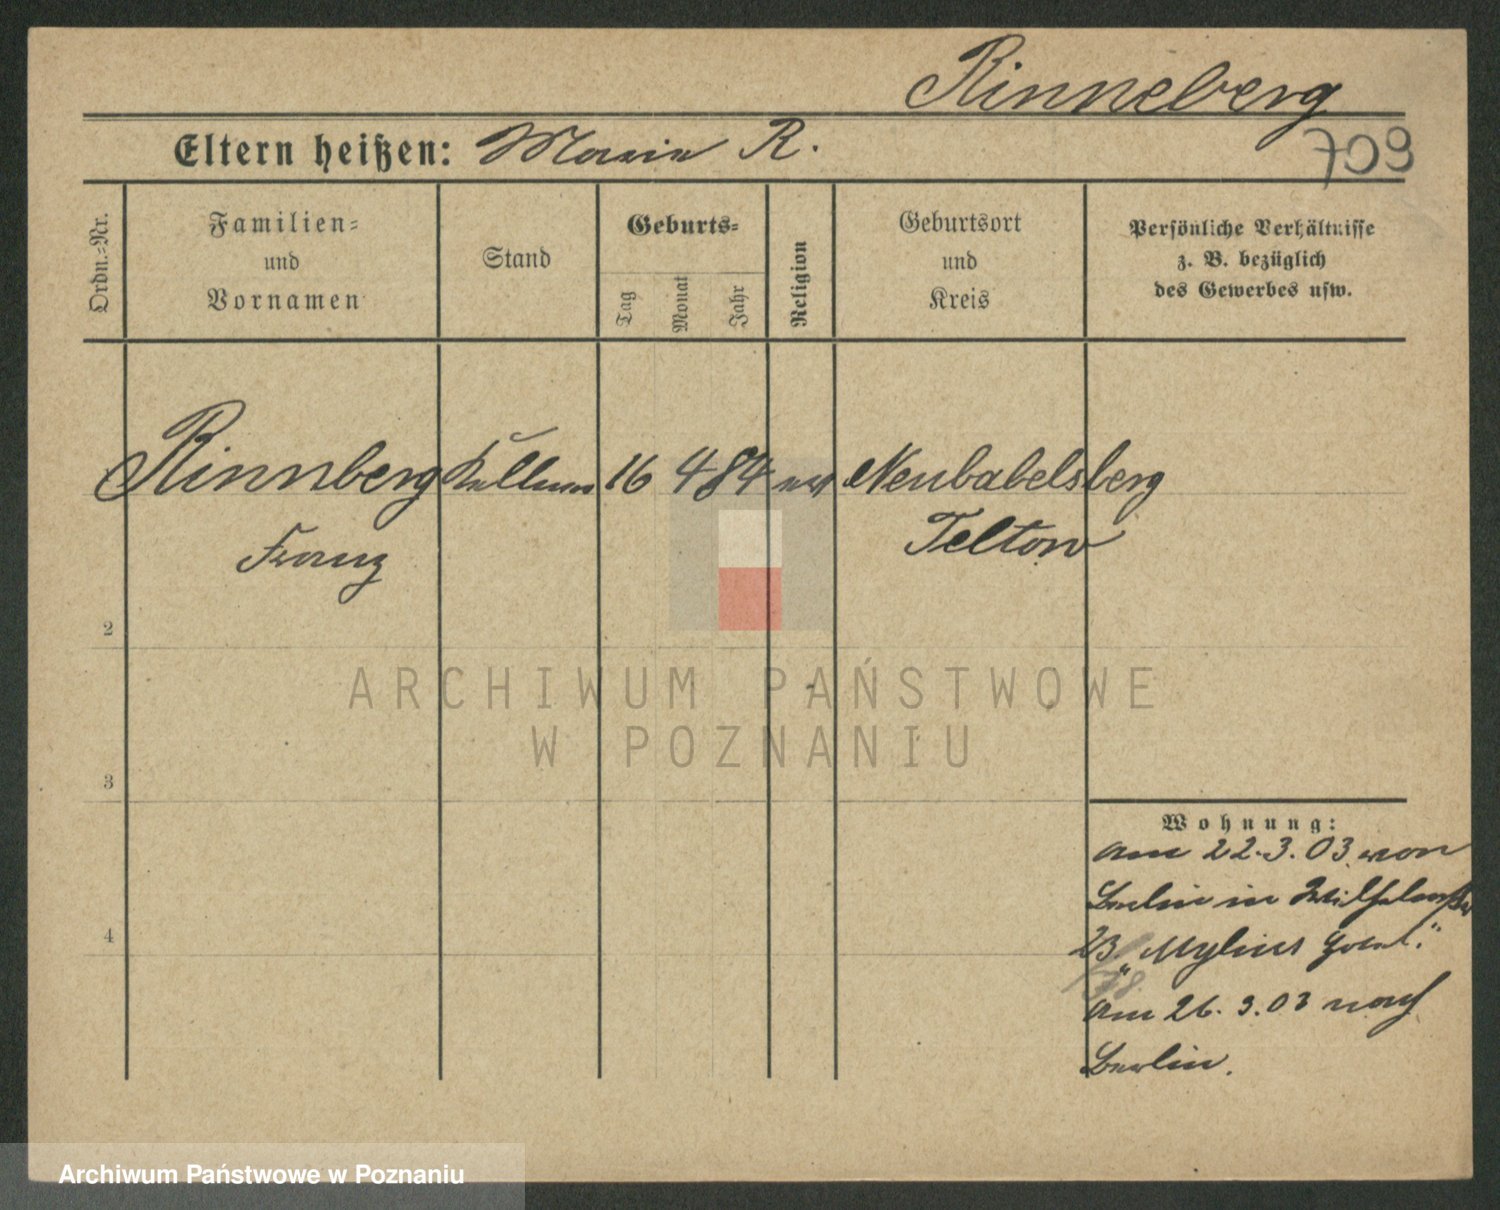 Rinneberg
709
Eltern heißen: Marie R.
Ordn.-Nr.
Familien-
und
Vornamen
Stand
Geburts-
Tag
Monat
Jahr
Religion
Geburtsort
und
Kreis
Persönliche Verhältnisse
z. B. bezüglich
des Gewerbes usw.
Rinnberg Kellner 16 4 84 ev Neubabelsberg
Franz Teltow
2
3
4
ARCHIWUM PAŃSTWOWE
W POZNANIU
Wohnung:
am 22.3.03 von
Berlin in Wilhelmstr
23 „Mylius Hotel."
am 26.3.03 nach
Berlin.
Archiwum Państwowe w Poznaniu